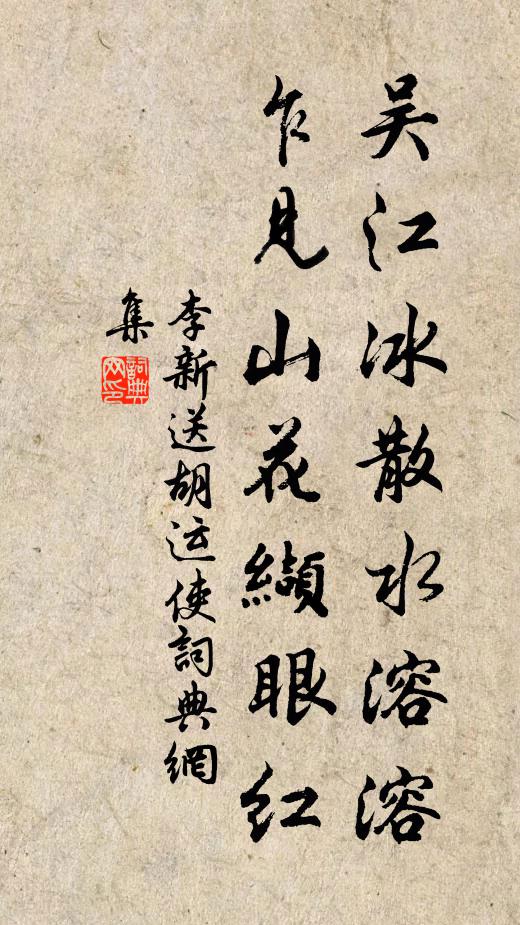 吴江冰散水溶溶
乍见山花纈眼红
李新送胡运使詞典網
集
詞典网印